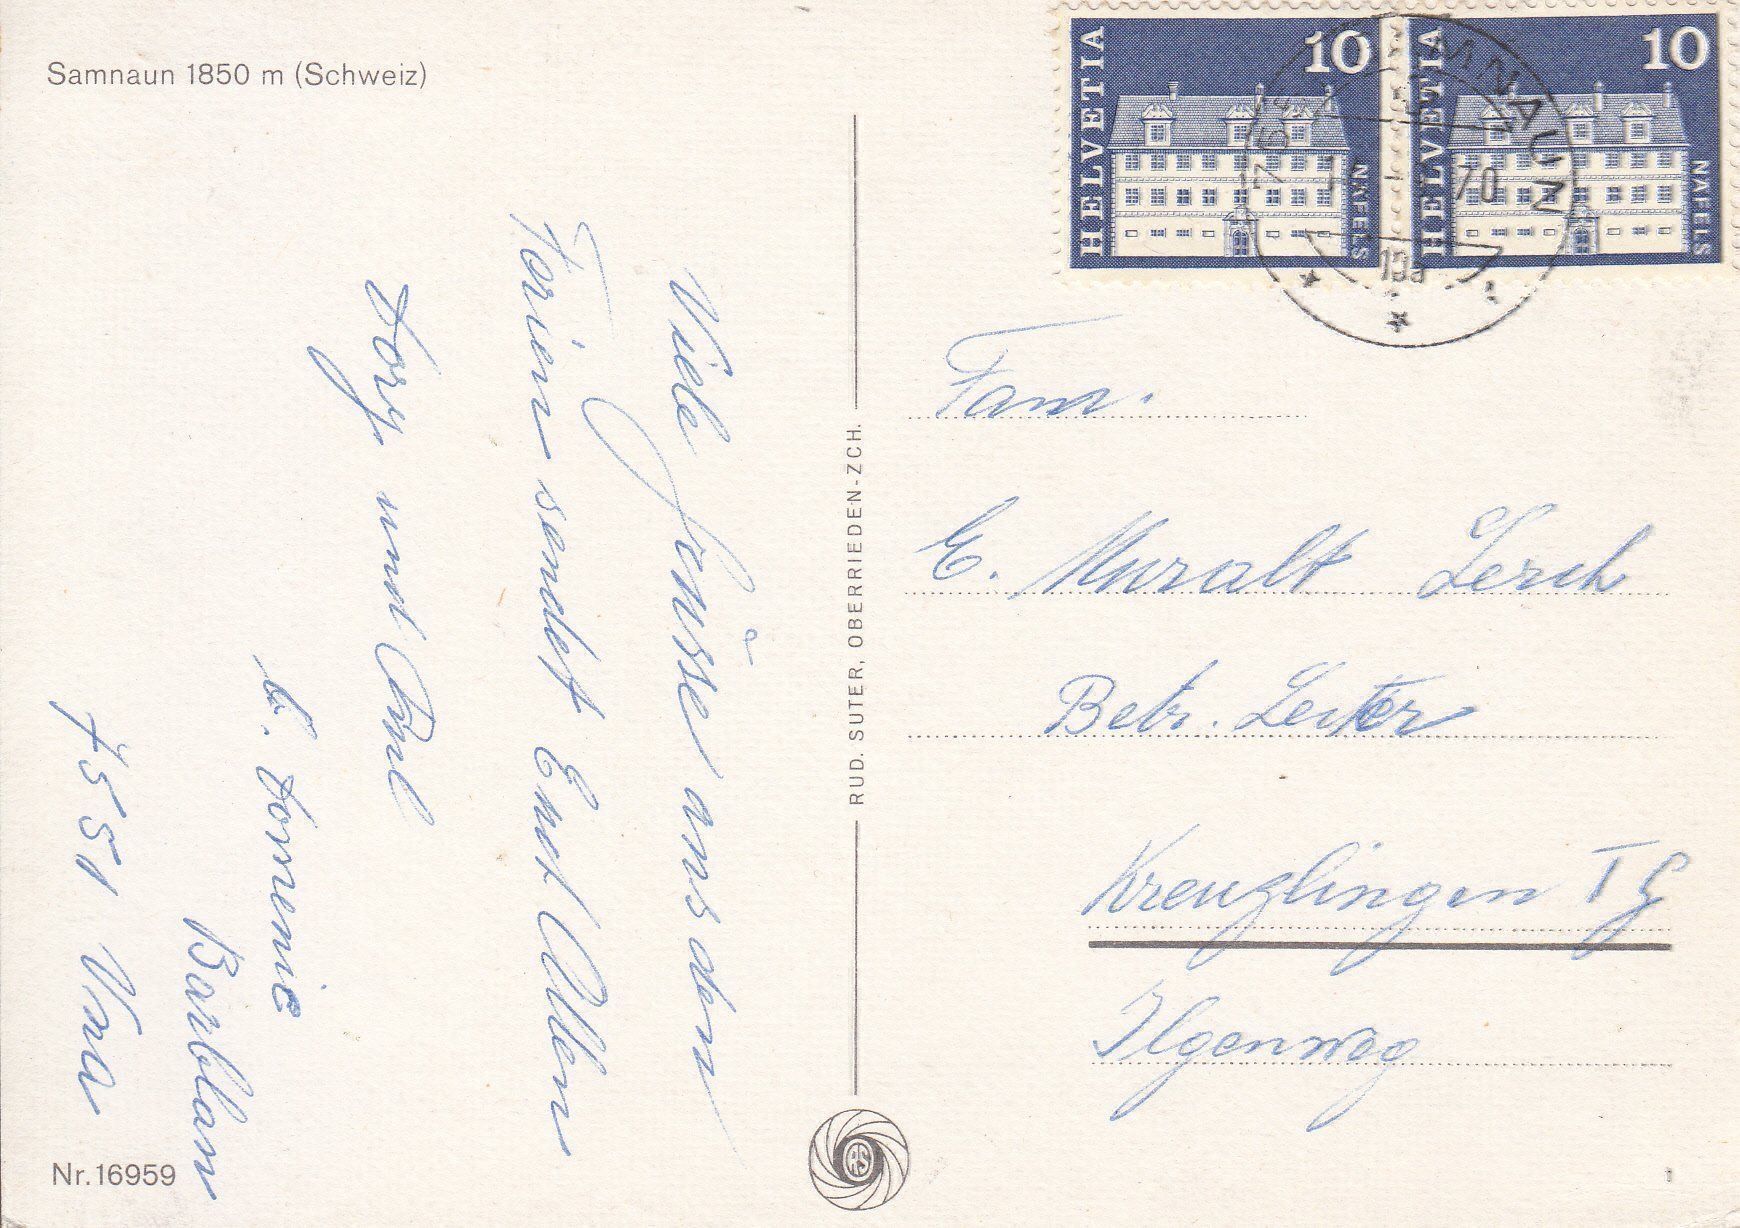 Samnaun 1850 m (Schweiz)
Viele Grüsse aus dem
Ferien sendet Euch Allen
Dory und Paul
b. Dorrenie
Barblan
7551 Vnà
Nr. 16959
RUD. SUTER, OBERRIEDEN-ZCH.
RS
HELVETIA
10
NÄFELS
HELVETIA
10
NÄFELS
70
Fam.
E. Muralt Lerch
Betr. Leiter
Kreuzlingen TG
Ilgenweg
1